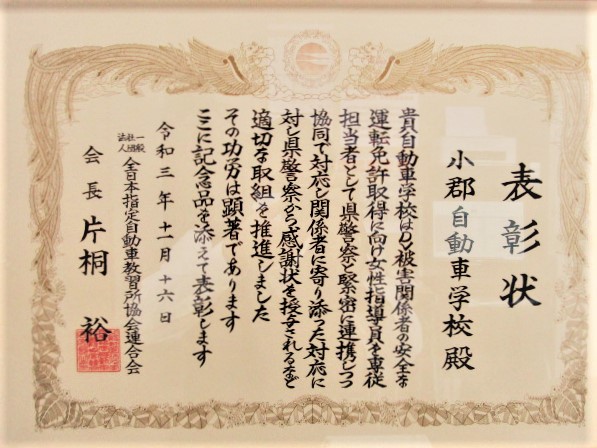 表彰状
小郡自動車学校殿
貴自動車学校はDV被害関係者の安全な
運転免許取得に向け女性指導員を専従
担当者として県警察と緊密に連携しつつ
協同で対応し関係者に寄り添った対応に
対し県警察から感謝状を授与されるなど
適切な取組を推進しました
その功労は顕著であります
ここに記念品を添えて表彰します
令和三年十一月十六日
一般社団法人 全日本指定自動車教習所協会連合会
会長 片桐 裕